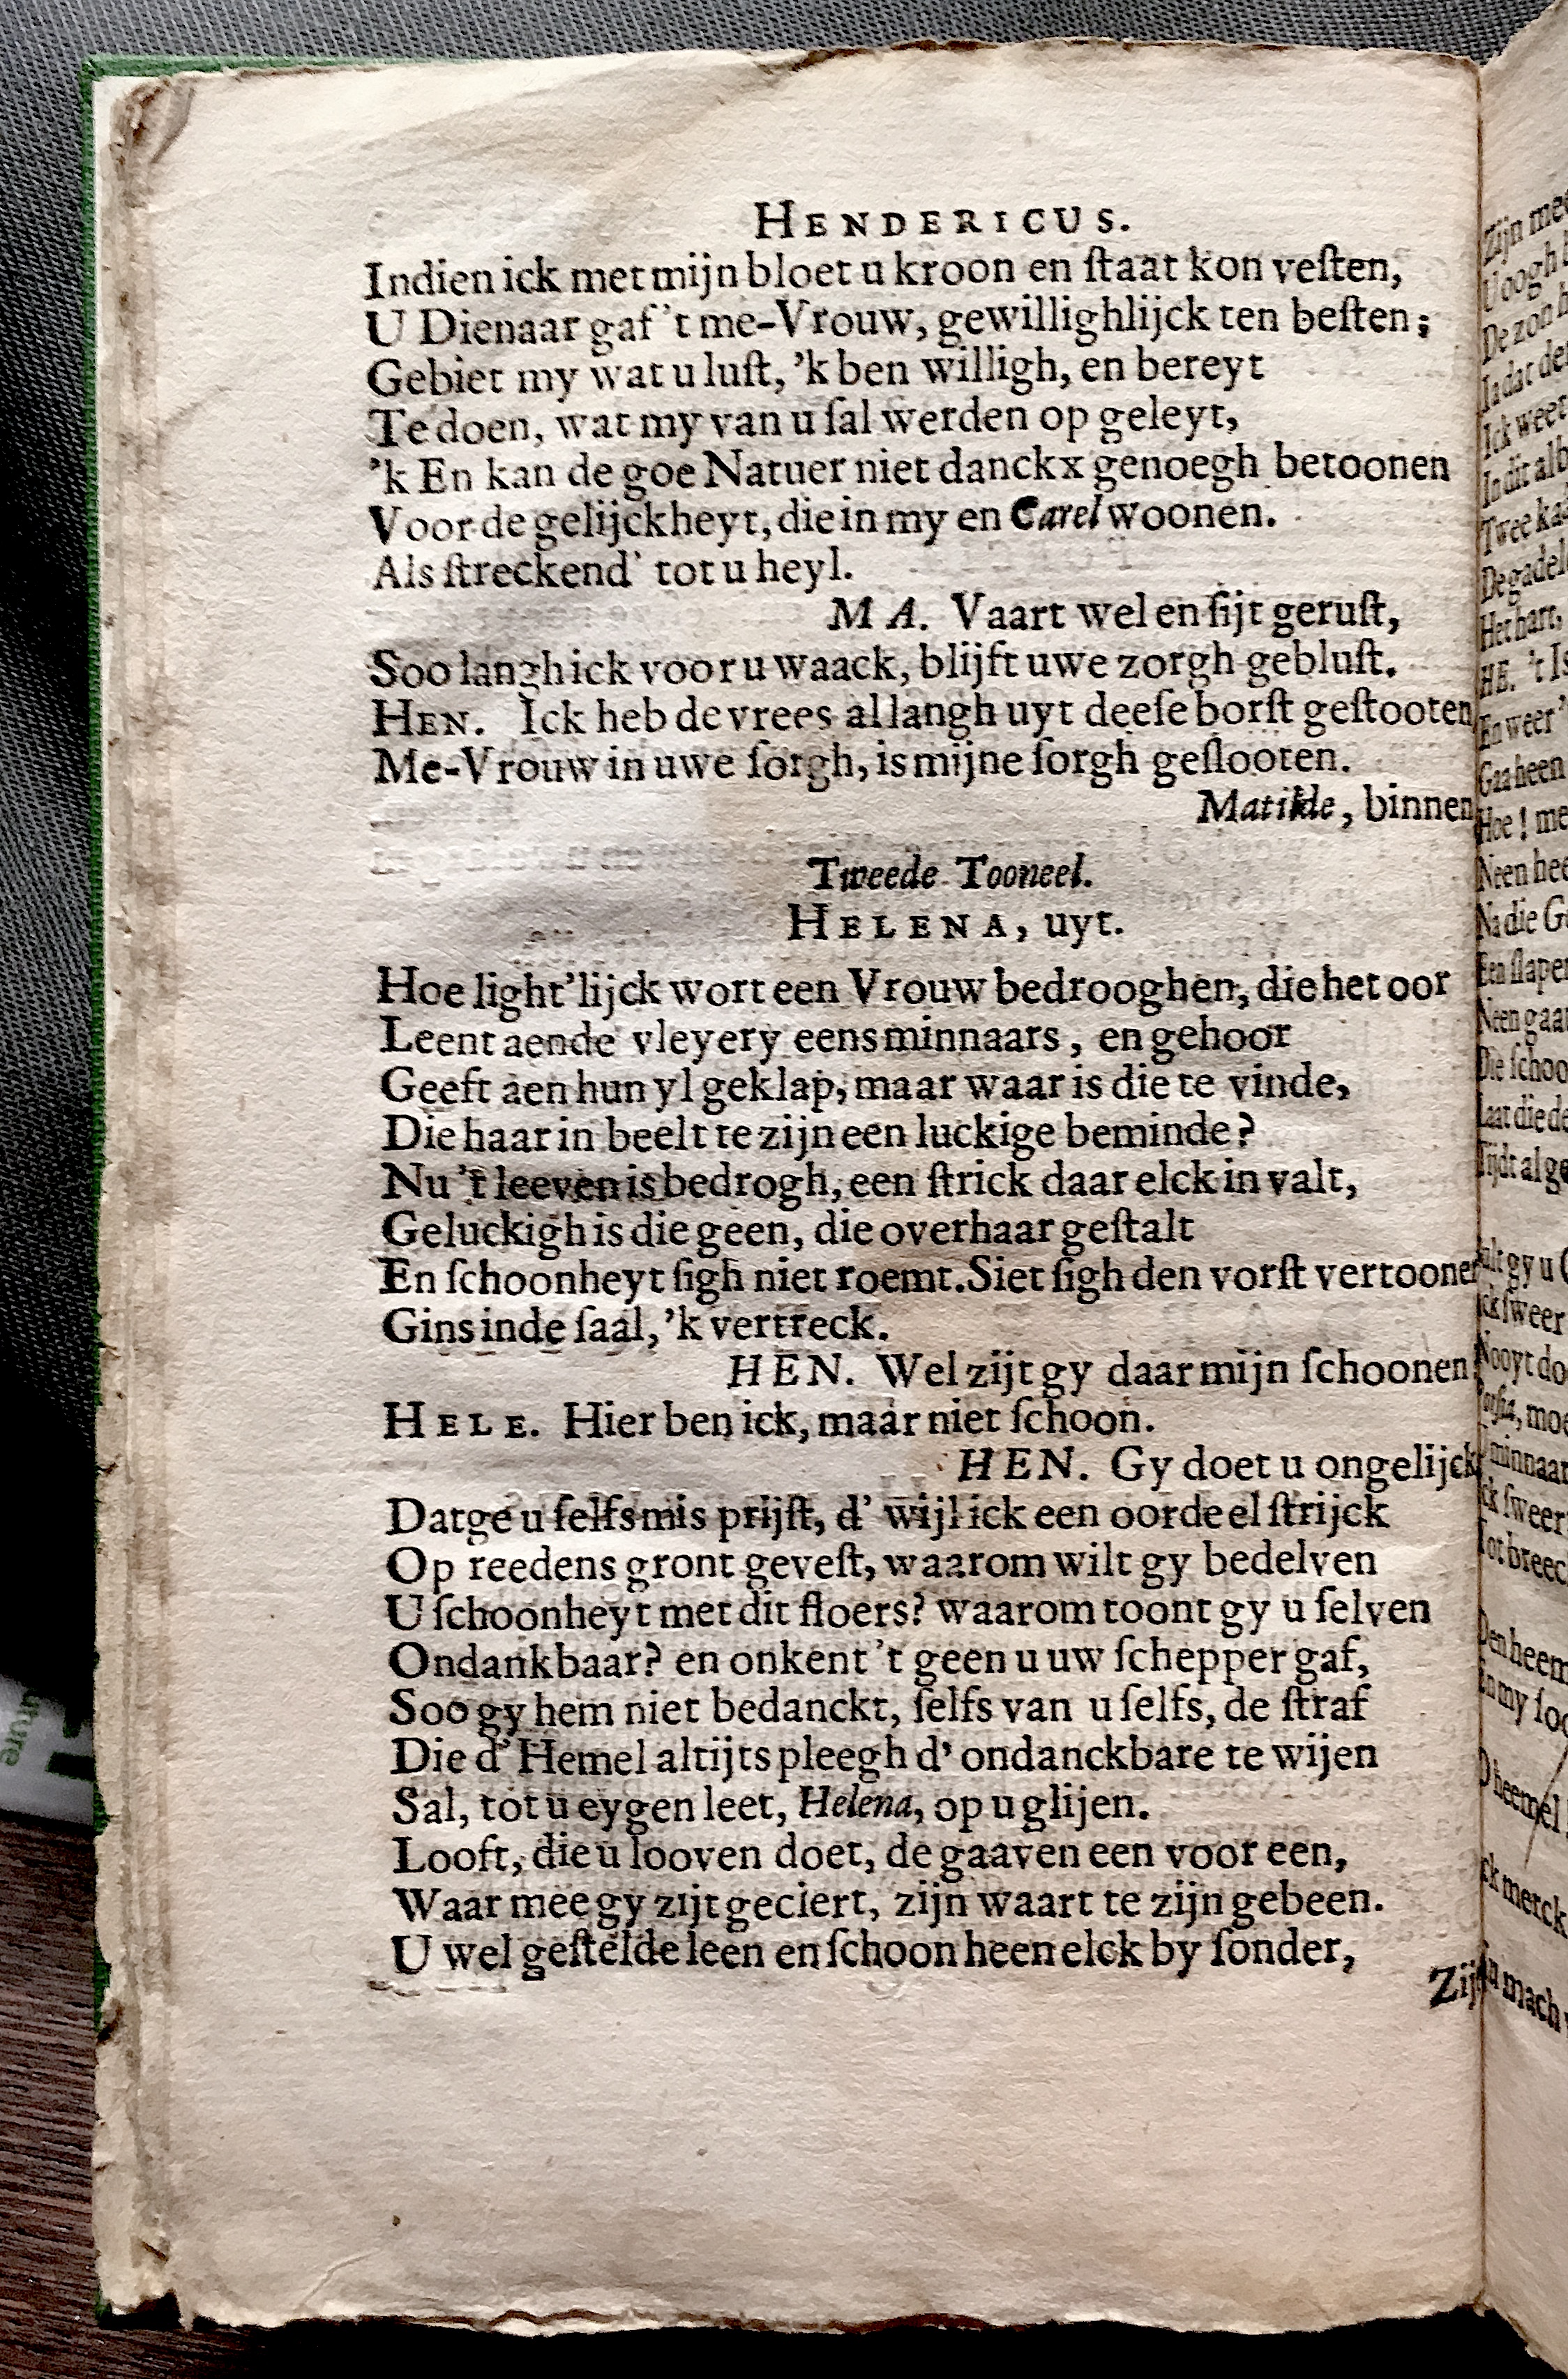 HENDERICUS.
Indien ick met mijn bloet u kroon en ſtaat kon veſten,
U Dienaar gaf 't me-Vrouw, gewillighlijck ten beſten;
Gebiet my wat u luſt, 'k ben willigh, en bereyt
Te doen, wat my van u ſal werden op geleyt,
'k En kan de goe Natuer niet danckx genoegh betoonen
Voor de gelijckheyt, die in my en Carel woonen.
Als ſtreckend' tot u heyl.
MA. Vaart wel en ſijt geruſt,
Soo langh ick voor u waack, blijft uwe zorgh gebluſt.
HEN. Ick heb de vrees al langh uyt deeſe borſt geſtooten
Me-Vrouw in uwe ſorgh, is mijne ſorgh geſlooten.
Matilde, binnen
Tweede Tooneel.
HELENA, uyt.
Hoe light'lijck wort een Vrouw bedrooghen, die het oor
Leent aende vleyery eens minnaars, en gehoor
Geeft aen hun yl geklap, maar waar is die te vinde,
Die haar in beelt te zijn een luckige beminde?
Nu 't leeven is bedrogh, een ſtrick daar elck in valt,
Geluckigh is die geen, die over haar geſtalt
En ſchoonheyt ſigh niet roemt. Siet ſigh den vorſt vertoonen
Gins inde ſaal, 'k vertreck.
HEN. Wel zijt gy daar mijn ſchoonen
HELE. Hier ben ick, maar niet ſchoon.
HEN. Gy doet u ongelijck
Dat ge u ſelfs mis prijſt, d' wijl ick een oordeel ſtrijck
Op reedens gront geveſt, waarom wilt gy bedelven
U ſchoonheyt met dit floers? waarom toont gy u ſelven
Ondankbaar? en onkent 't geen u uw ſchepper gaf,
Soo gy hem niet bedanckt, ſelfs van u ſelfs, de ſtraf
Die d' Hemel altijts pleegh d' ondanckbare te wijen
Sal, tot u eygen leet, Helena, op u glijen.
Looft, die u looven doet, de gaaven een voor een,
Waar mee gy zijt geciert, zijn waart te zijn gebeen.
U wel geſtelde leen en ſchoonheen elck by ſonder,
Zij